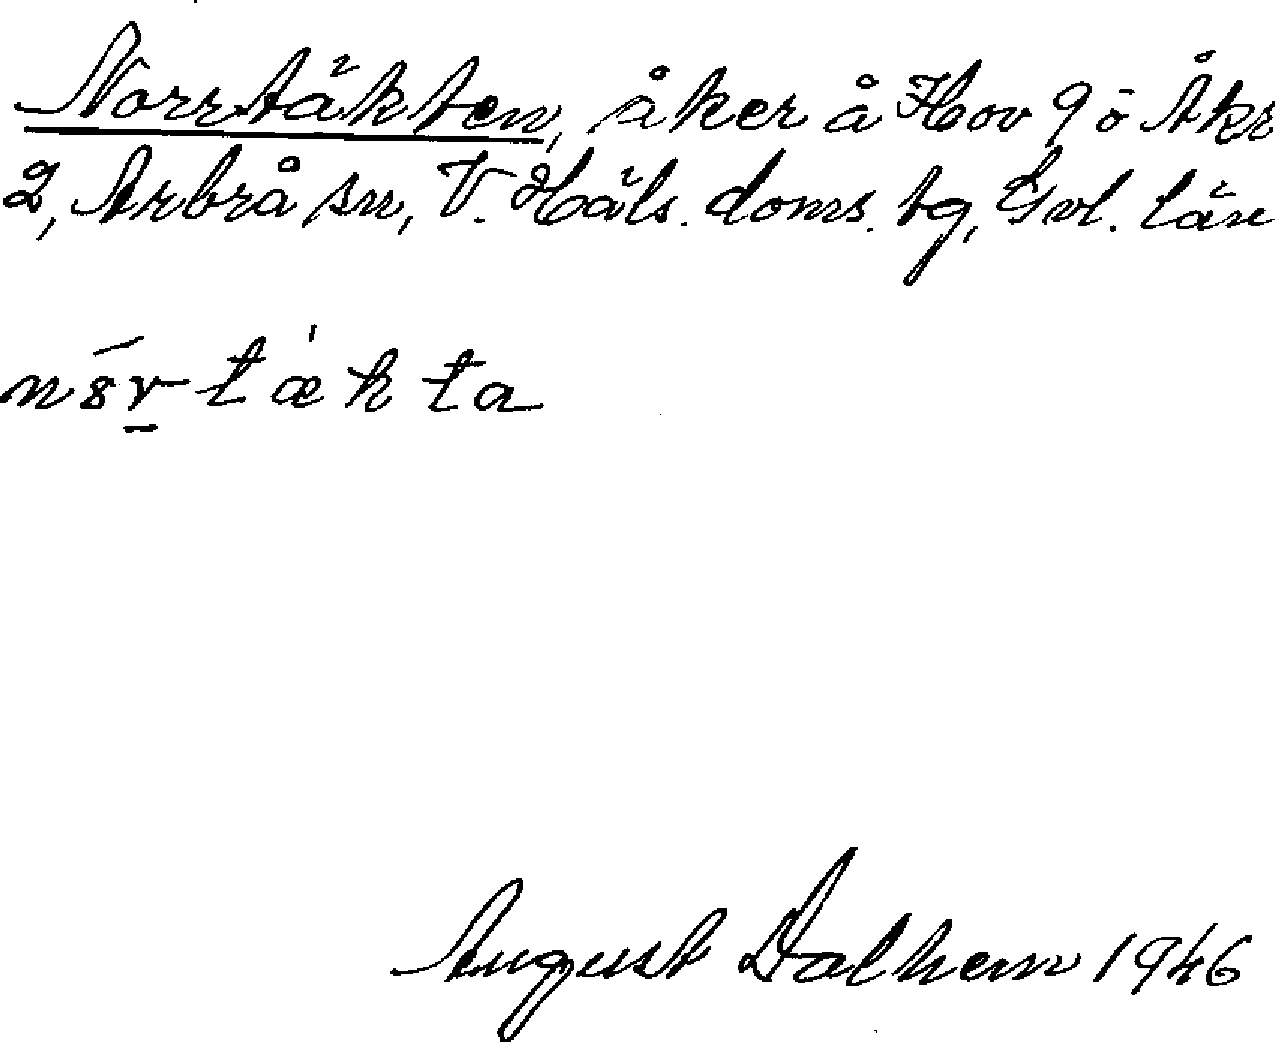 Norrtäkten, åker å Hov 9 ö Åkr
2, Arbrå sn, V. Häls. doms. tg, Gvl. län
August Dalhem 1946